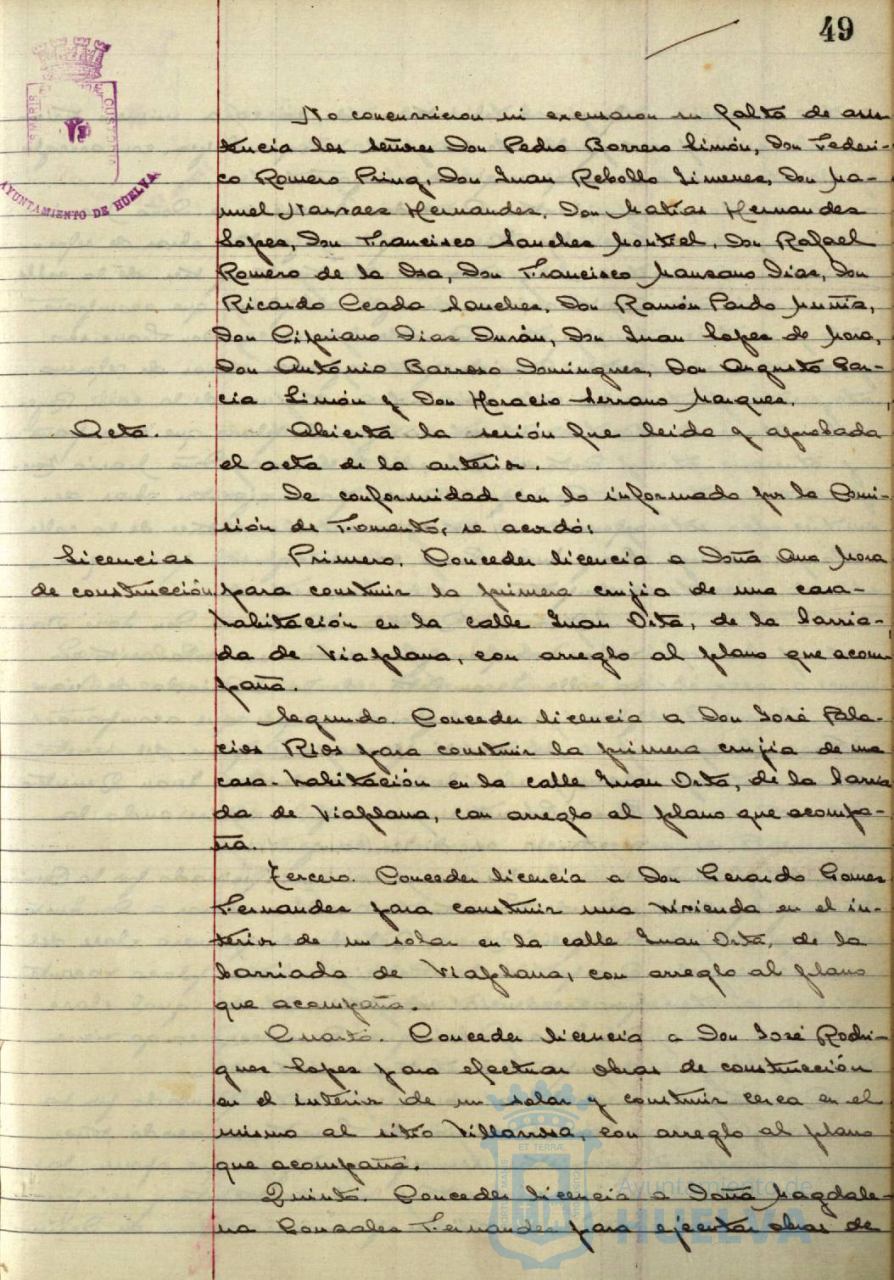 49
AYUNTAMIENTO DE HUELVA
No concurrieron ni excusaron su falta de asis-
tencia los señores Don Pedro Borrero Limón, Don Federi-
co Romero Pring, Don Juan Rebollo Jimenez, Don Ma-
nuel Narvaez Hernandez, Don Matías Hernandez
Lopez, Don Francisco Sanchez Montiel, Don Rafael
Romero de la Osa, Don Francisco Manzano Diaz, Don
Ricardo Ceada Sanchez, Don Ramón Pardo
Don Cipriano Diaz Durán, Don Juan Lopez de Mora,
Don António Barroso Dominguez, Don Augusto Gar-
cia Limón y Don Horacio Serrano Marquez.
Acta.
Abierta la sesión fue leida y aprobada
el acta de la anterior.
De conformidad con lo informado por la Comi-
sión de Fomento, se acordó:
Licencias
de construcción
Primero. Conceder licencia a Doña Ana Mora
para construir la primera crujia de una casa-
habitación en la calle Juan Orta, de la barria-
da de Viaplana, con arreglo al plano que acom-
paña.
Segundo. Conceder licencia a Don José Pala-
cios Rios para construir la primera crujia de una
casa-habitación en la calle Juan Orta, de la barria
da de Viaplana, con arreglo al plano que acompa-
ña.
Tercero. Conceder licencia a Don Gerardo Gomez
Fernandez para construir una vivienda en el in-
terior de un solar en la calle Juan Orta, de la
barriada de Viaplana, con arreglo al plano
que acompaña.
Cuarto. Conceder licencia a Don José Rodri-
guez Lopez para efectuar obras de construcción
en el interior de un solar y construir cerca en el
mismo al sitio Villarrosa, con arreglo al plano
que acompaña.
Quinto. Conceder licencia a Doña Magdale-
na Gonzalez Fernandez para ejecutar obras de
Ayuntamiento de
HUELVA